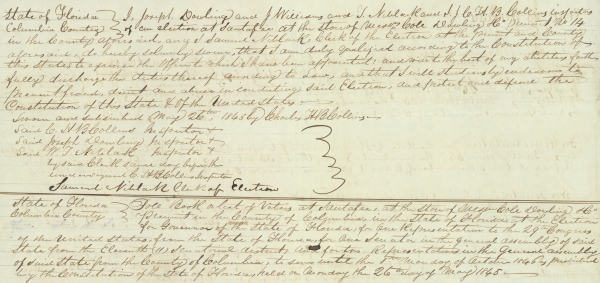 State of Florida } I, Joseph Dowling and J Williams and T. Niblack and I, C. H. B. Collins inspectors
Columbia County } of an election at Santafee at the Store of Messrs Cole Dowling &Co Precint No 14
in the County aforesaid, and I Samuel Niblack Clerk of the Election at the precint and County
aforesaid, do solemnly swear, that I am duly qualified according to the Constitution of
this State to exercise the Office to which I have been appointed: and will to the best of my abilities faith
fully discharge the duties thereof according to law, and that I will studiously endeavor to
prevent fraud, deceit and abuse in conducting said Election, and protect and defend the
Constitution of this State & of the United States
Sworn and subscribed May 26th 1845 by Charles H B Collins
Said C. H B Collins Inspector +
Said Joseph Dowling Inspector +
Said T. Niblack Inspector +
by said Clerk same day before the
undersigned C H B Collins Inspector
Samuel Niblack Clerk of Election
State of Florida } Pole Book a list of Voters at Santafee, at the Store of Messrs Cole Dowling &Co
Columbia County } Precint in the County of Columbia, in the State of Florida, at the Election
for Governor of the State of Florida, for one Representative to the 29th Congress
of the United States, from the State of Florida for one Senator in the General assembly of said
State from the Eleventh Senatorial district and for two Representatives in the General assembly
of said State from the County of Columbia, to serve until the 1st Monday of October 1846 as prescribed
by the Constitution of the State of Florida, held on Monday the 26th day of May 1845